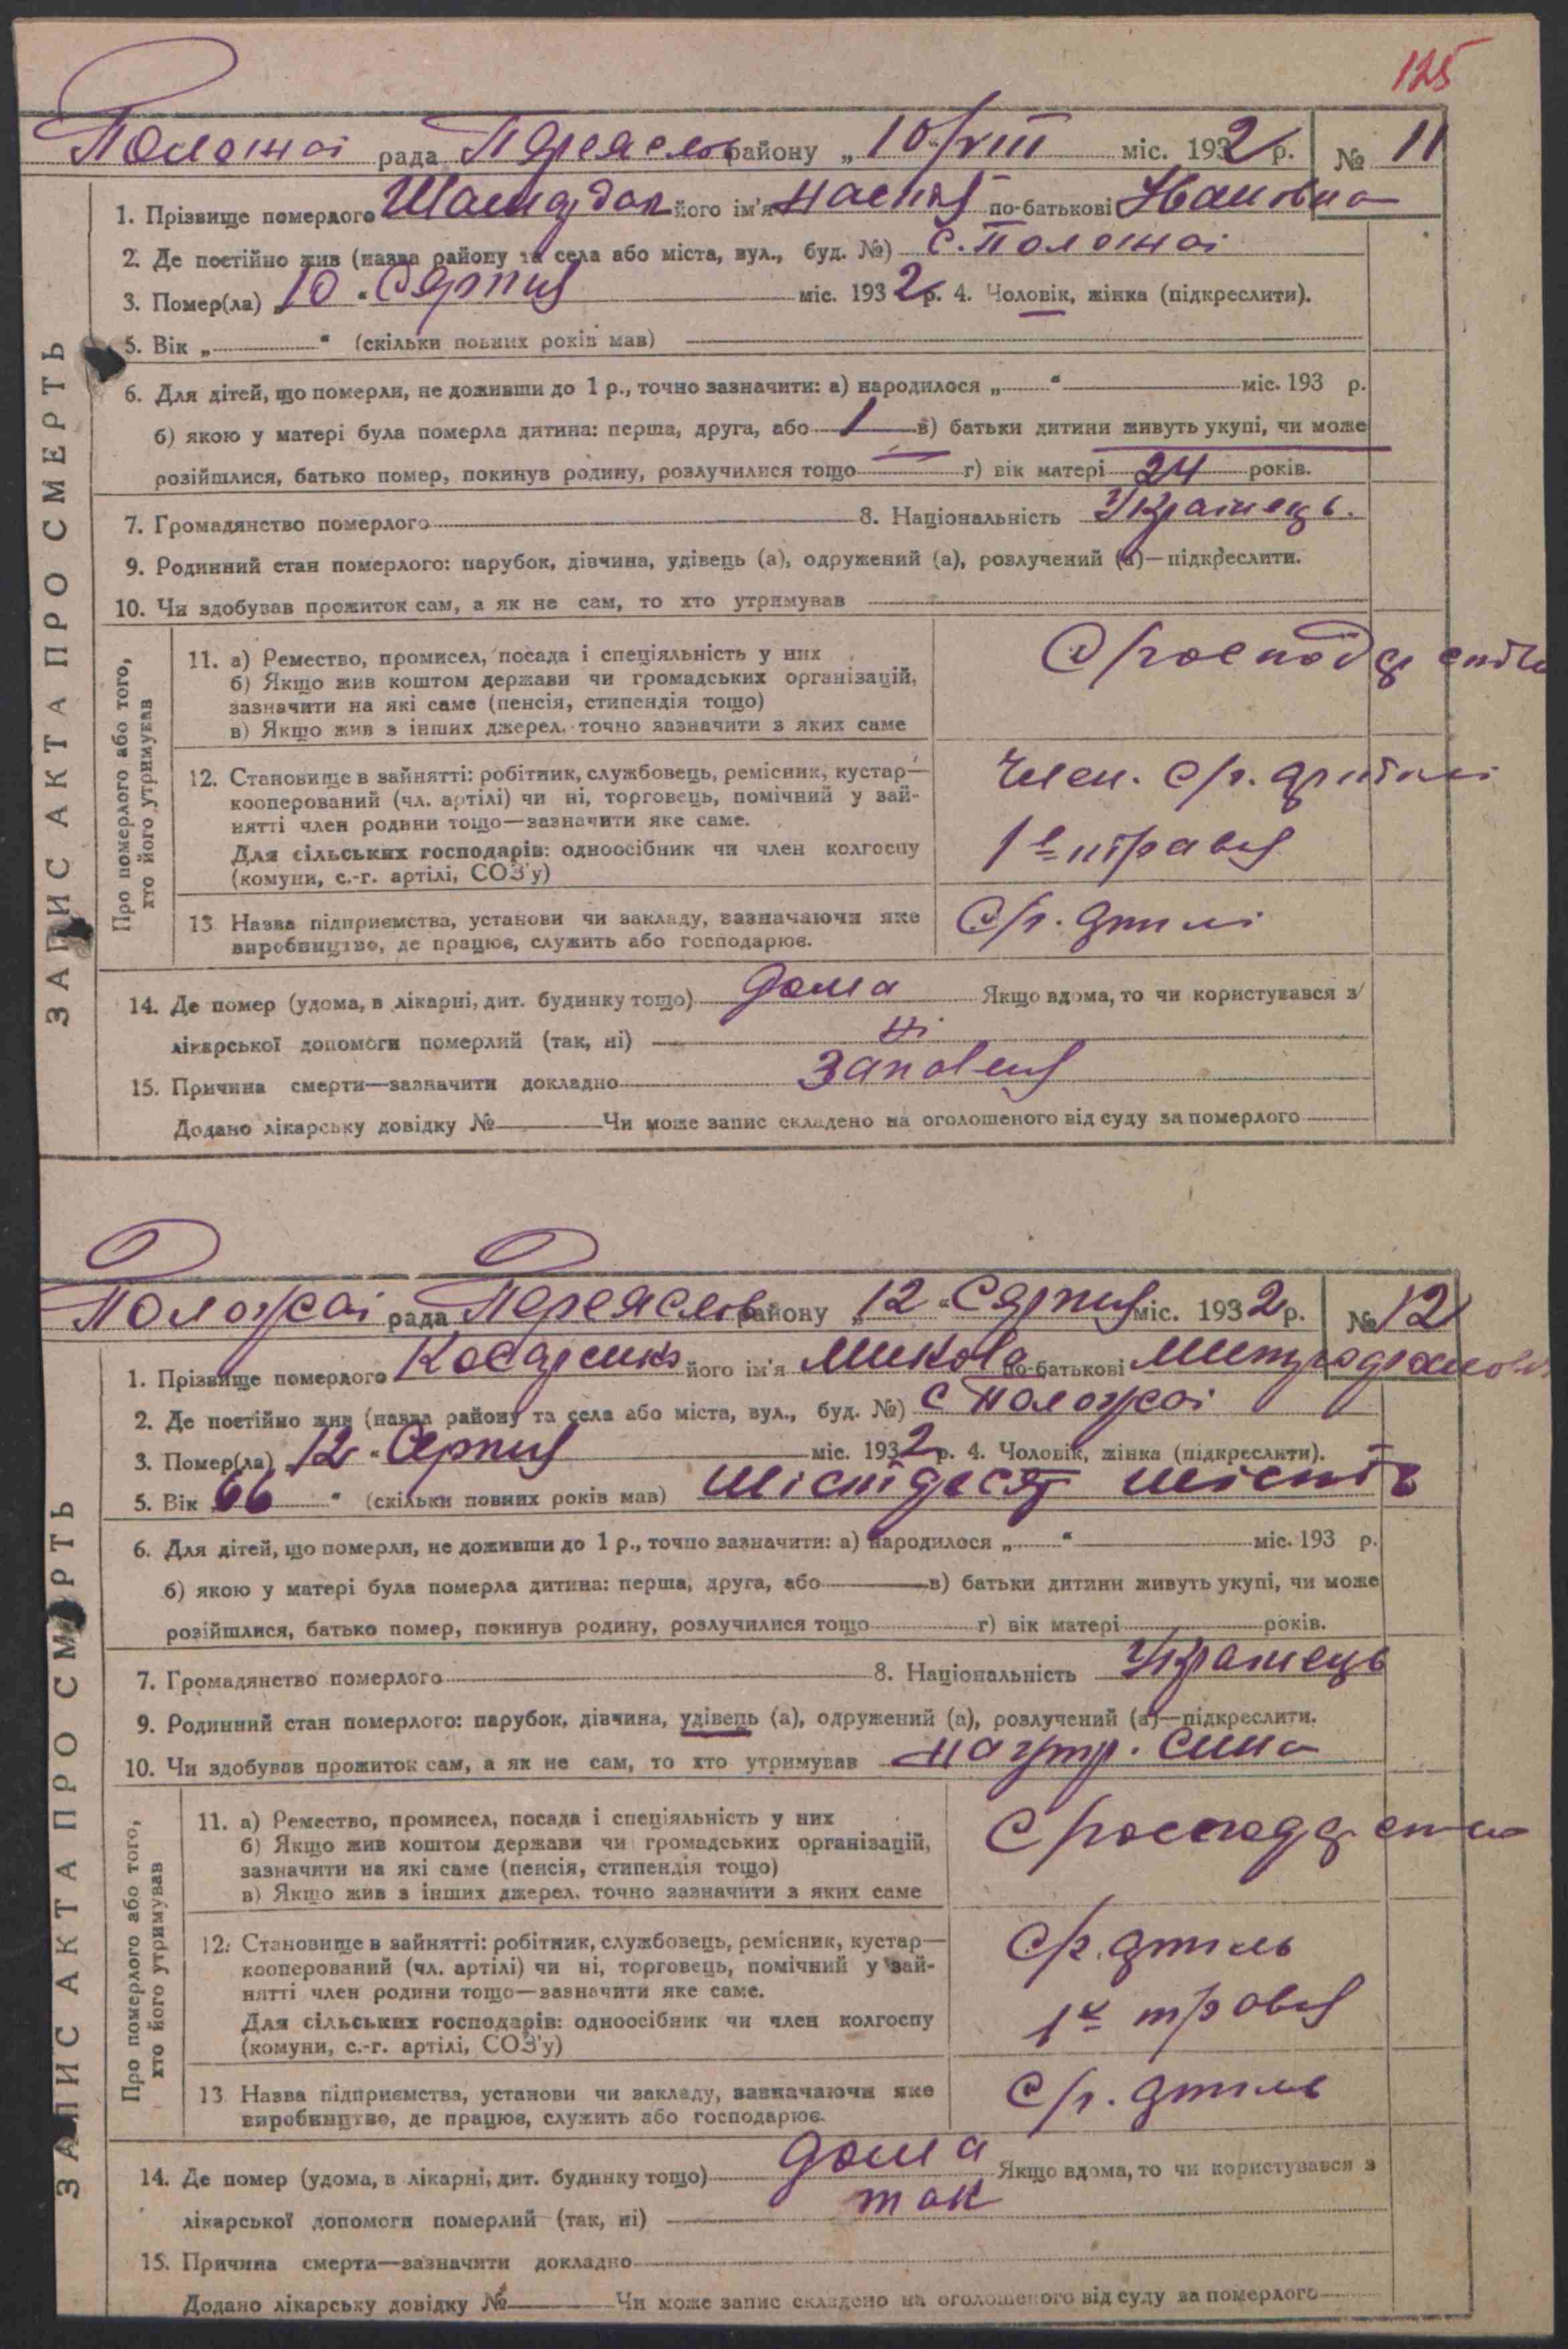 125
Положаї рада Переяслов району „10/VIII міс. 1932 р. № 11
1. Прізвище померлого його ім'я Настя по-батькові Іановна
2. Де постійно жив (назва району та села або міста, вул., буд. №) с. Положаї
3. Помер(ла) „10“ Серпня міс. 1932 р. 4. Чоловік, жінка (підкреслити).
5. Вік „ “ (скільки повних років мав)
6. Для дітей, що померли, не доживши до 1 р., точно зазначити: а) народилося „ “ міс. 193 р.
б) якою у матері була померла дитина: перша, друга, або 1 в) батьки дитини живуть укупі, чи може
розійшлися, батько помер, покинув родину, розлучилися тощо г) вік матері 24 років.
7. Громадянство померлого 8. Національність Українець.
9. Родинний стан померлого: парубок, дівчина, удівець (а), одружений (а), розлучений (а)—підкреслити.
10. Чи здобував прожиток сам, а як не сам, то хто утримував
ЗАПИС АКТА ПРО СМЕРТЬ
Про померлого або того,
хто його утримував
11. а) Ремество, промисел, посада і спеціяльність у них
б) Якщо жив коштом держави чи громадських організацій,
зазначити на які саме (пенсія, стипендія тощо)
в) Якщо жив з інших джерел, точно зазначити з яких саме
12. Становище в зайнятті: робітник, службовець, ремісник, кустар— Член. С/г. артілі
кооперований (чл. артілі) чи ні, торговець, помічний у зай-
нятті член родини тощо—зазначити яке саме.
Для сільських господарів: одноосібник чи член колгоспу 1е травня
(комуни, с.-г. артілі, СОЗ'у)
13. Назва підприємства, установи чи закладу, зазначаючи яке С/г. артілі
виробництво, де працює, служить або господарює.
14. Де помер (удома, в лікарні, дит. будинку тощо) дома Якщо вдома, то чи користувався з
лікарської допомоги померлий (так, ні) Ні
15. Причина смерти—зазначити докладно
Додано лікарську довідку № Чи може запис складено на оголошеного від суду за померлого
Положаї рада Переяслов району „12“ Серпня міс. 1932 р. № 12
1. Прізвище померлого Косаренко його ім'я Микола по-батькові
2. Де постійно жив (назва району та села або міста, вул., буд. №) с Положаї
3. Помер(ла) „12“ Серпня міс. 1932 р. 4. Чоловік, жінка (підкреслити).
5. Вік „66“ (скільки повних років мав) Шістдесят шість
6. Для дітей, що померли, не доживши до 1 р., точно зазначити: а) народилося „ “ міс. 193 р.
б) якою у матері була померла дитина: перша, друга, або в) батьки дитини живуть укупі, чи може
розійшлися, батько помер, покинув родину, розлучилися тощо г) вік матері років.
7. Громадянство померлого 8. Національність Українець
9. Родинний стан померлого: парубок, дівчина, удівець (а), одружений (а), розлучений (а)—підкреслити.
10. Чи здобував прожиток сам, а як не сам, то хто утримував на утр. сина
ЗАПИС АКТА ПРО СМЕРТЬ
Про померлого або того,
хто його утримував
11. а) Ремество, промисел, посада і спеціяльність у них
б) Якщо жив коштом держави чи громадських організацій,
зазначити на які саме (пенсія, стипендія тощо)
в) Якщо жив з інших джерел, точно зазначити з яких саме
12. Становище в зайнятті: робітник, службовець, ремісник, кустар— С/г. артиль
кооперований (чл. артілі) чи ні, торговець, помічний у зай-
нятті член родини тощо—зазначити яке саме.
Для сільських господарів: одноосібник чи член колгоспу 1е травня
(комуни, с.-г. артілі, СОЗ'у)
13. Назва підприємства, установи чи закладу, зазначаючи яке С/г. артиль
виробництво, де працює, служить або господарює.
14. Де помер (удома, в лікарні, дит. будинку тощо) дома Якщо вдома, то чи користувався з
лікарської допомоги померлий (так, ні) так
15. Причина смерти—зазначити докладно
Додано лікарську довідку № Чи може запис складено на оголошеного від суду за померлого